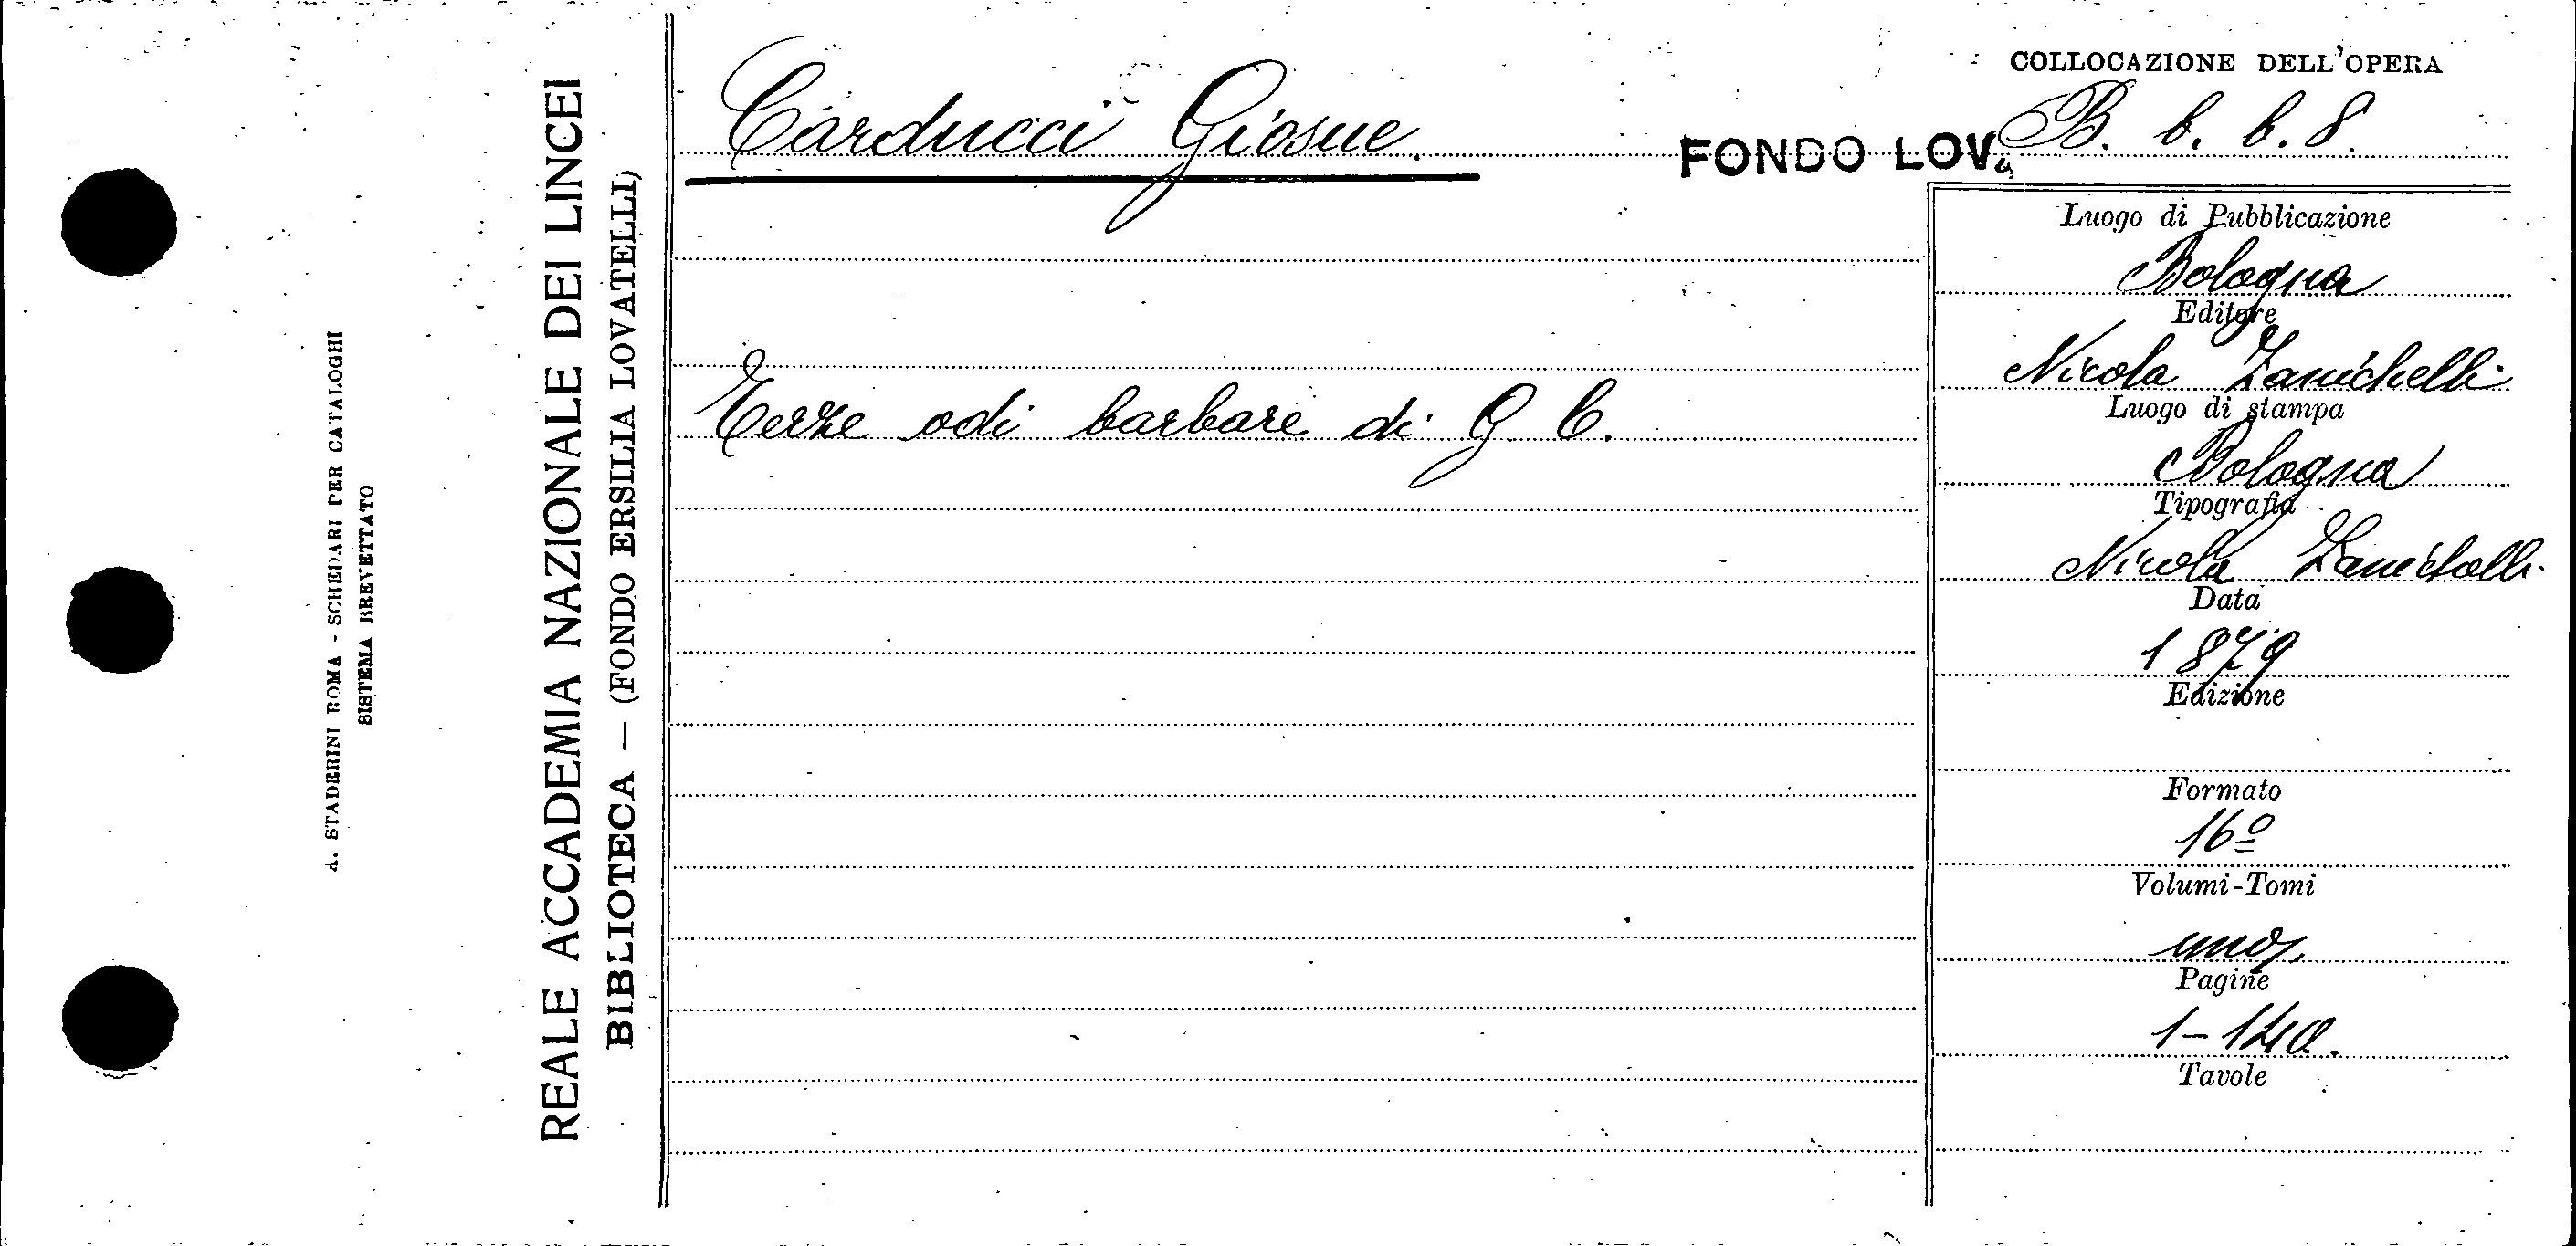 A. STADERINI ROMA - SCHEDARI PER CATALOGHI
SISTEMA BREVETTATO
REALE ACCADEMIA NAZIONALE DEI LINCEI
BIBLIOTECA — (FONDO ERSILIA LOVATELLI)
Carducci Giosue.
FONDO LOV.
COLLOCAZIONE DELL'OPERA
B. b. b. 8.
Terze odi barbare di G C.
Luogo di Pubblicazione
Bologna
Editore
Nicola Zanichelli
Luogo di stampa
Bologna
Tipografia
Nicola Zanichelli
Data
1879
Edizione
Formato
16º
Volumi-Tomi
uno
Pagine
1-140.
Tavole